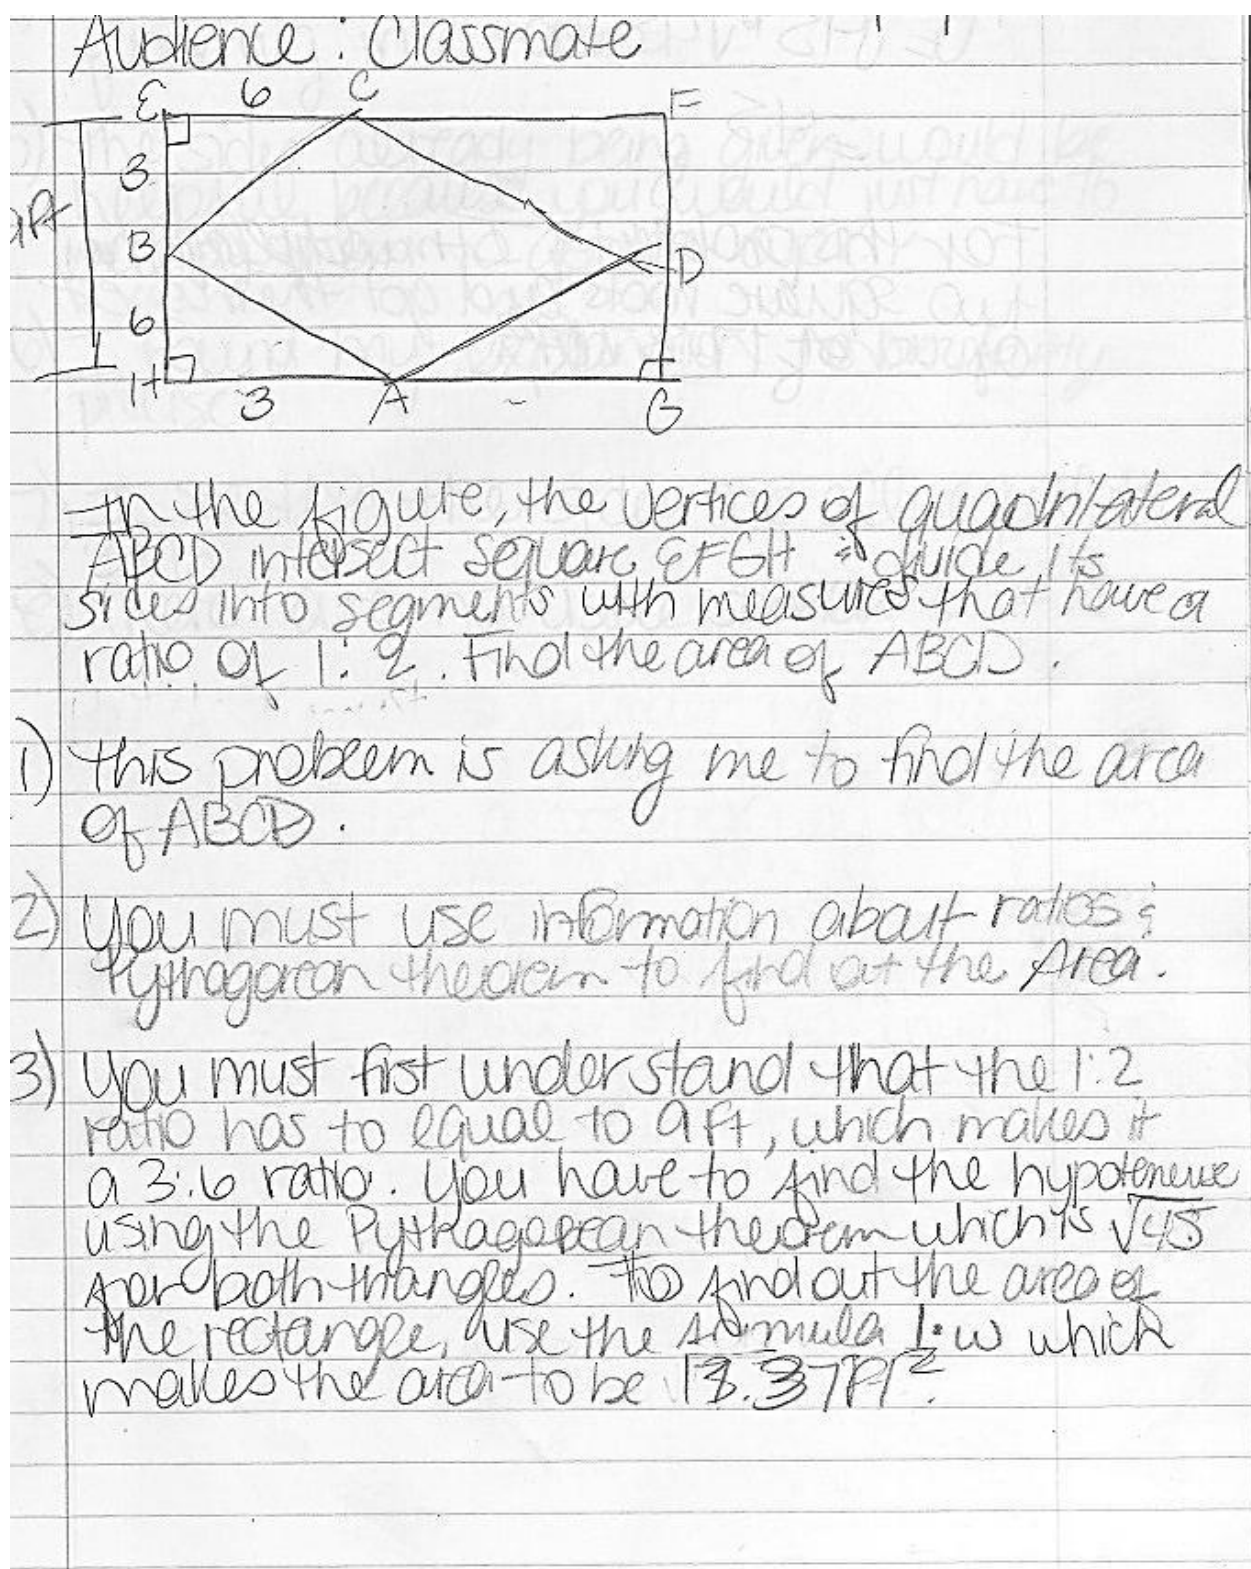 Audience: Classmate
E 6 C F
3
9ft
B D
6
H 3 A G
In the figure, the vertices of quadrilateral
ABCD intersect square EFGH & divide its
sides into segments with measures that have a
ratio of 1:2. Find the area of ABCD.
1) this problem is asking me to find the area
of ABCD.
2) You must use information about ratios &
Pythagorean theorem to find out the Area.
3) You must first understand that the 1:2
ratio has to equal to 9ft, which makes it
a 3:6 ratio. You have to find the hypotenuse
using the Pythagorean theorem which is √45
for both triangles. To find out the area of
the rectangle, use the formula l·w which
makes the area to be 13.37ft²